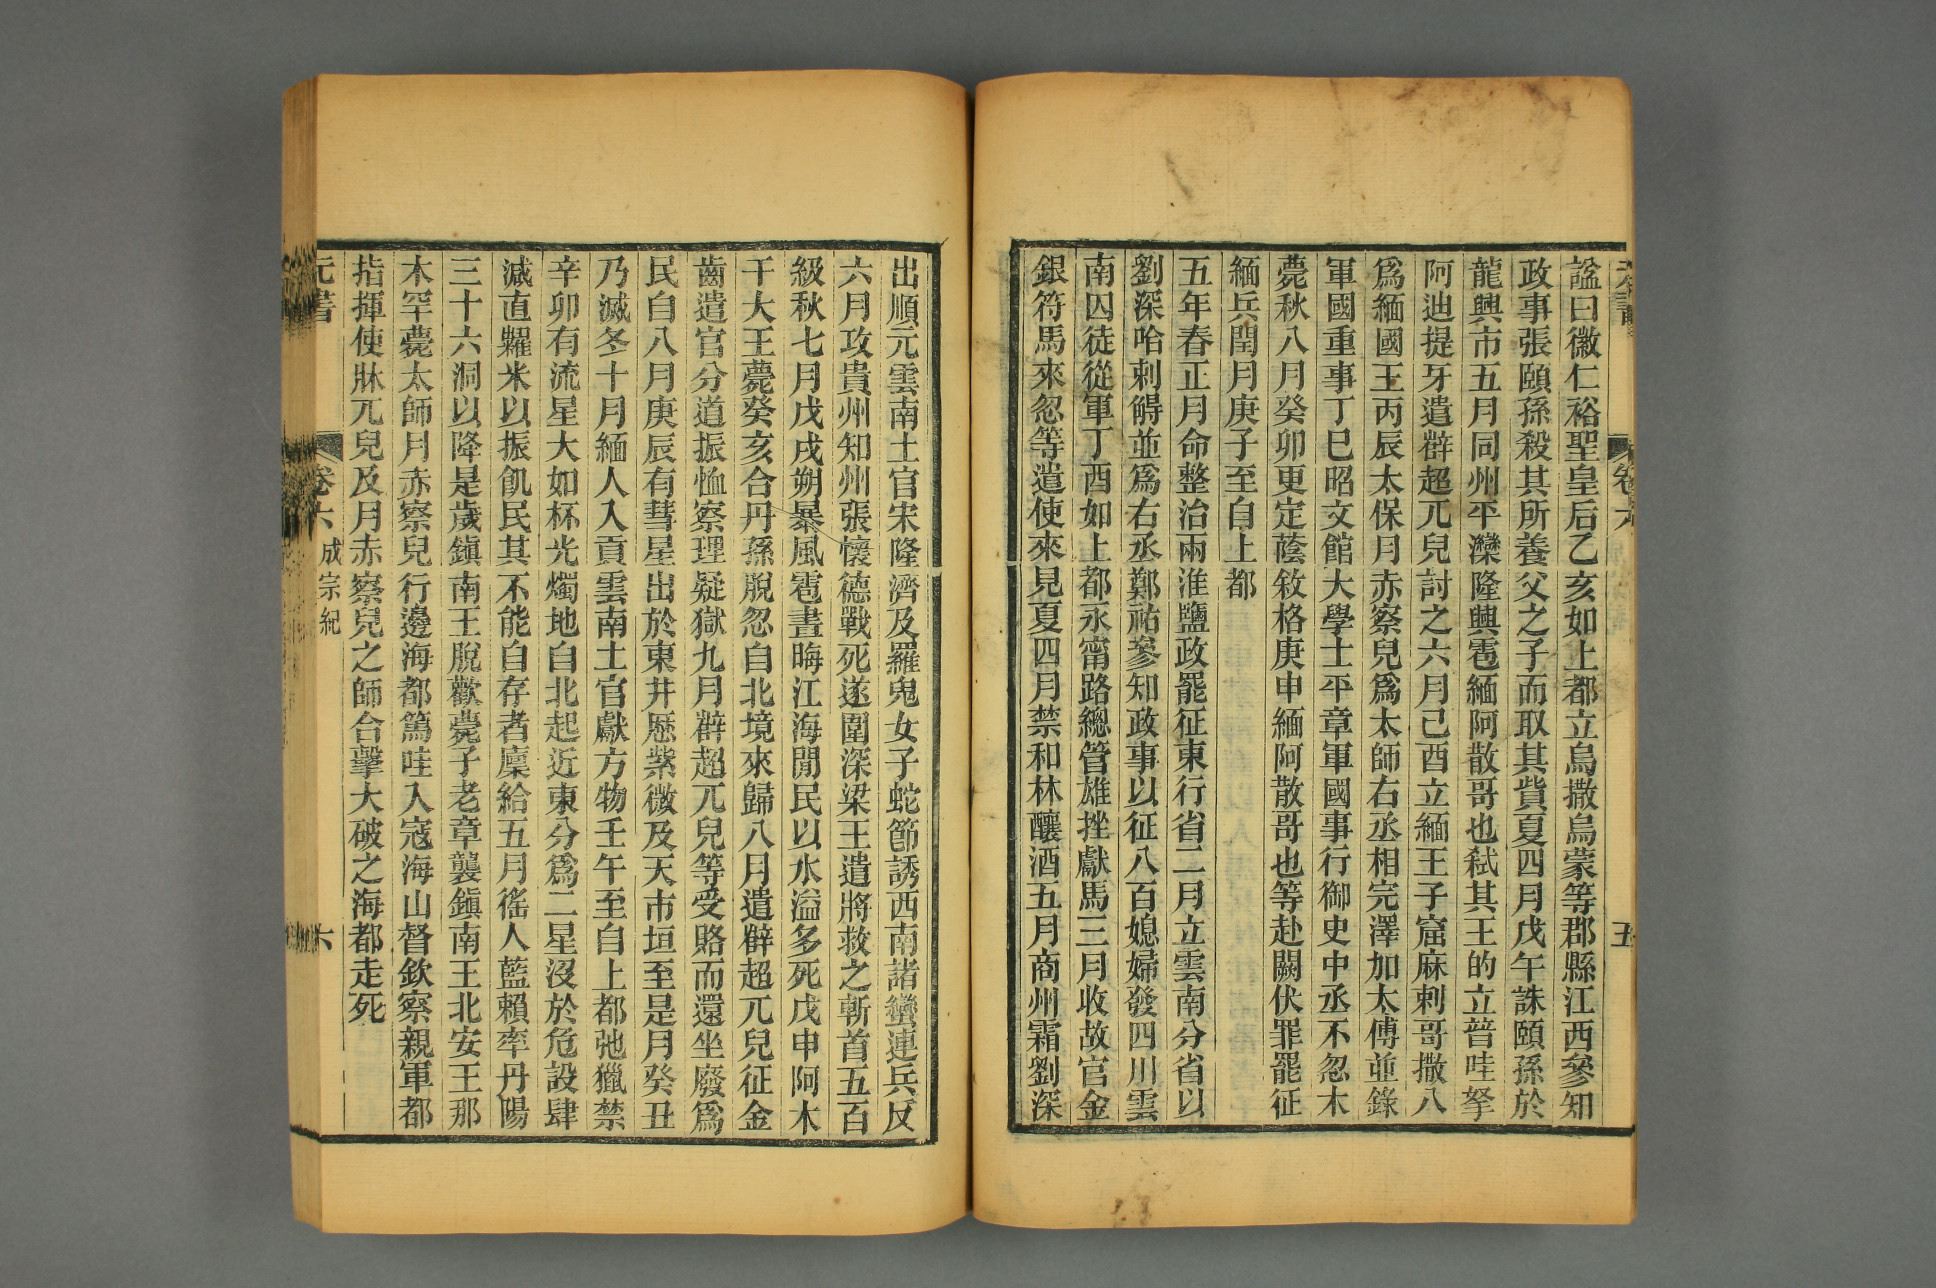 諡曰徽仁裕聖皇后乙亥如上都立烏撒烏蒙等郡縣江西參知
政事張頤孫殺其所養父之子而取其貲夏四月戊午誅頤孫於
龍興市五月同州平灤隆興雹緬阿散哥也弒其王的立普哇拏
阿迪提牙遣辥超兀兒討之六月己酉立緬王子窟麻剌哥撒八
爲緬國王丙辰太保月赤察兒爲太師右丞相完澤加太傅並錄
軍國重事丁巳昭文館大學士平章軍國事行御史中丞不忽木
薨秋八月癸卯更定蔭敘格庚申緬阿散哥也等赴闕伏罪罷征
緬兵閏月庚子至自上都
五年春正月命整治兩淮鹽政罷征東行省二月立雲南分省以
劉深哈剌䚟並爲右丞鄭祐參知政事以征八百媳婦發四川雲
南囚徒從軍丁酉如上都永甯路總管雄挫獻馬三月收故官金
銀符馬來忽等遣使來見夏四月禁和林釀酒五月商州霜劉深
出順元雲南土官宋隆濟及羅鬼女子蛇節誘西南諸蠻連兵反
六月攻貴州知州張懷德戰死遂圍深梁王遣將救之斬首五百
級秋七月戊戌朔暴風雹晝晦江海閒民以水溢多死戊申阿木
干大王薨癸亥合丹孫脫忽自北境來歸八月遣辥超兀兒征金
齒遣官分道振恤察理疑獄九月辥超兀兒等受賂而還坐廢爲
民自八月庚辰有彗星出於東井歷紫微及天市垣至是月癸丑
乃滅冬十月緬人入貢雲南土官獻方物壬午至自上都弛獵禁
辛卯有流星大如杯光燭地自北起近東分爲二星沒於危設肆
減直糶米以振飢民其不能自存者廩給五月徭人藍賴率丹陽
三十六洞以降是歲鎭南王脫歡薨子老章襲鎭南王北安王那
木罕薨太師月赤察兒行邊海都篤哇入寇海山督欽察親軍都
指揮使牀兀兒及月赤察兒之師合擊大破之海都走死
元書
卷六
成宗紀
六